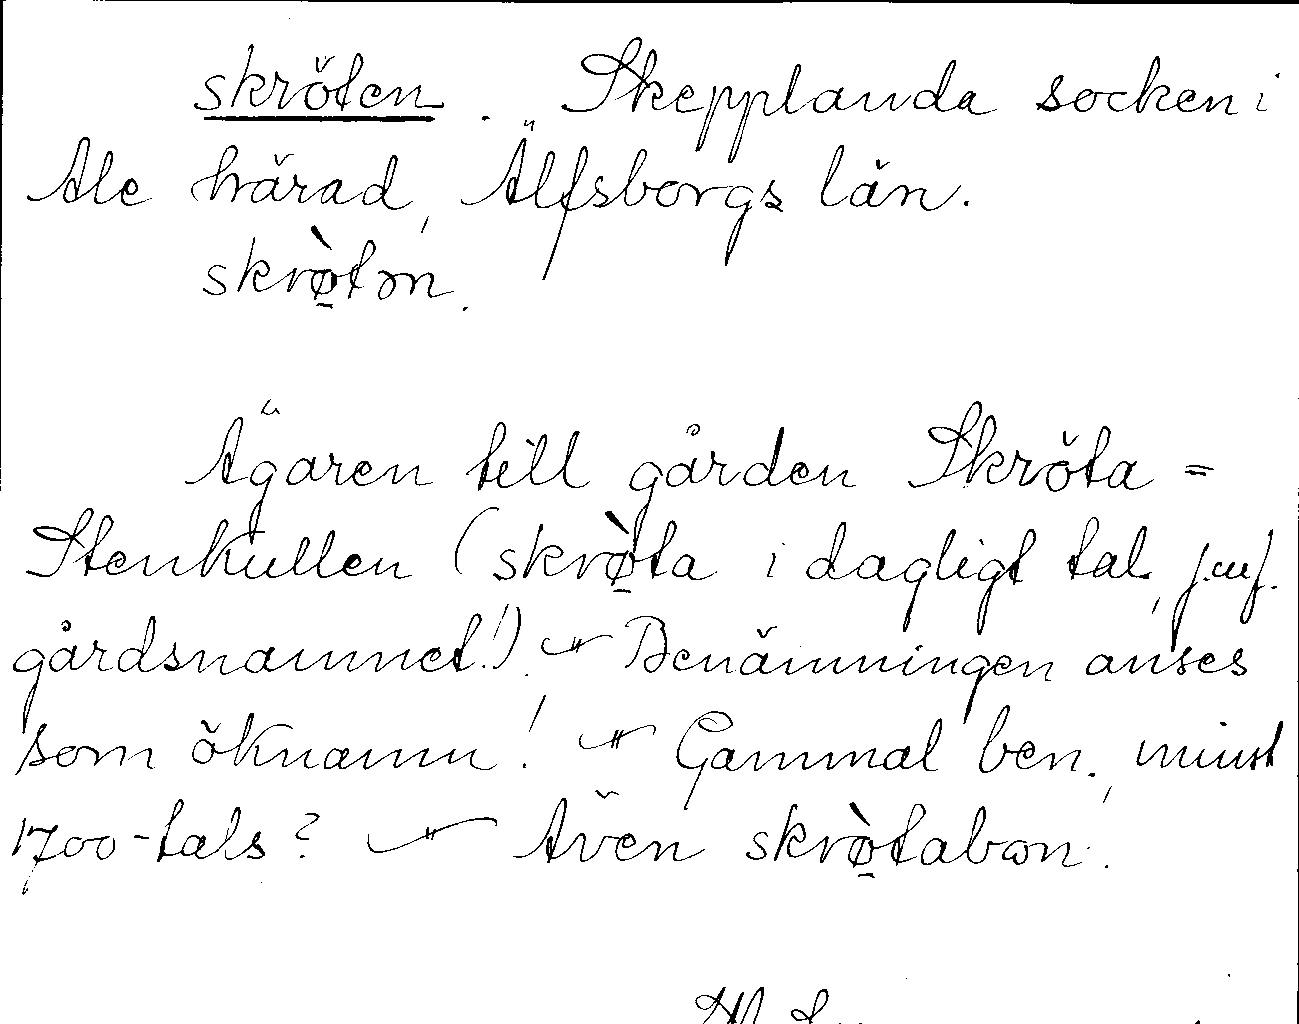 skröten. Skepplanda socken i
Ale härad, Älfsborgs län.
skrø̠̀tən.
Ägaren till gården Skröta =
Stenkullen (skrø̠̀ta i dagligt tal, jmf.
gårdsnamnet!). — " — Benämningen anses
som öknamn! — " — Gammal ben., minst
1700-tals? — " — Även skrø̠̀tabon.